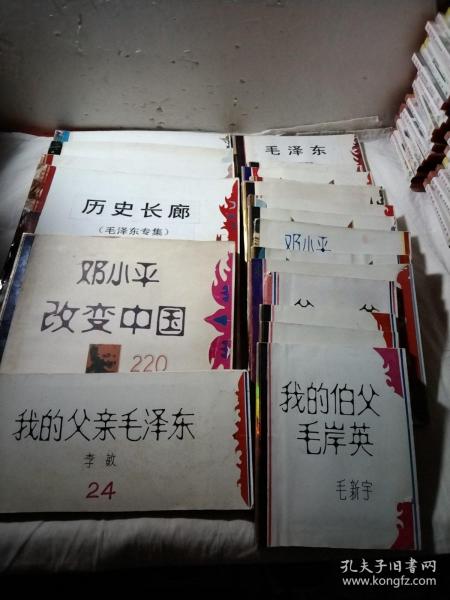 毛泽东
历史长廊
（毛泽东专集）
邓小平
邓小平
改变中国
220
我的父亲毛泽东
李敏
24
我的伯父
毛岸英
毛新宇
孔夫子旧书网
www.kongfz.com